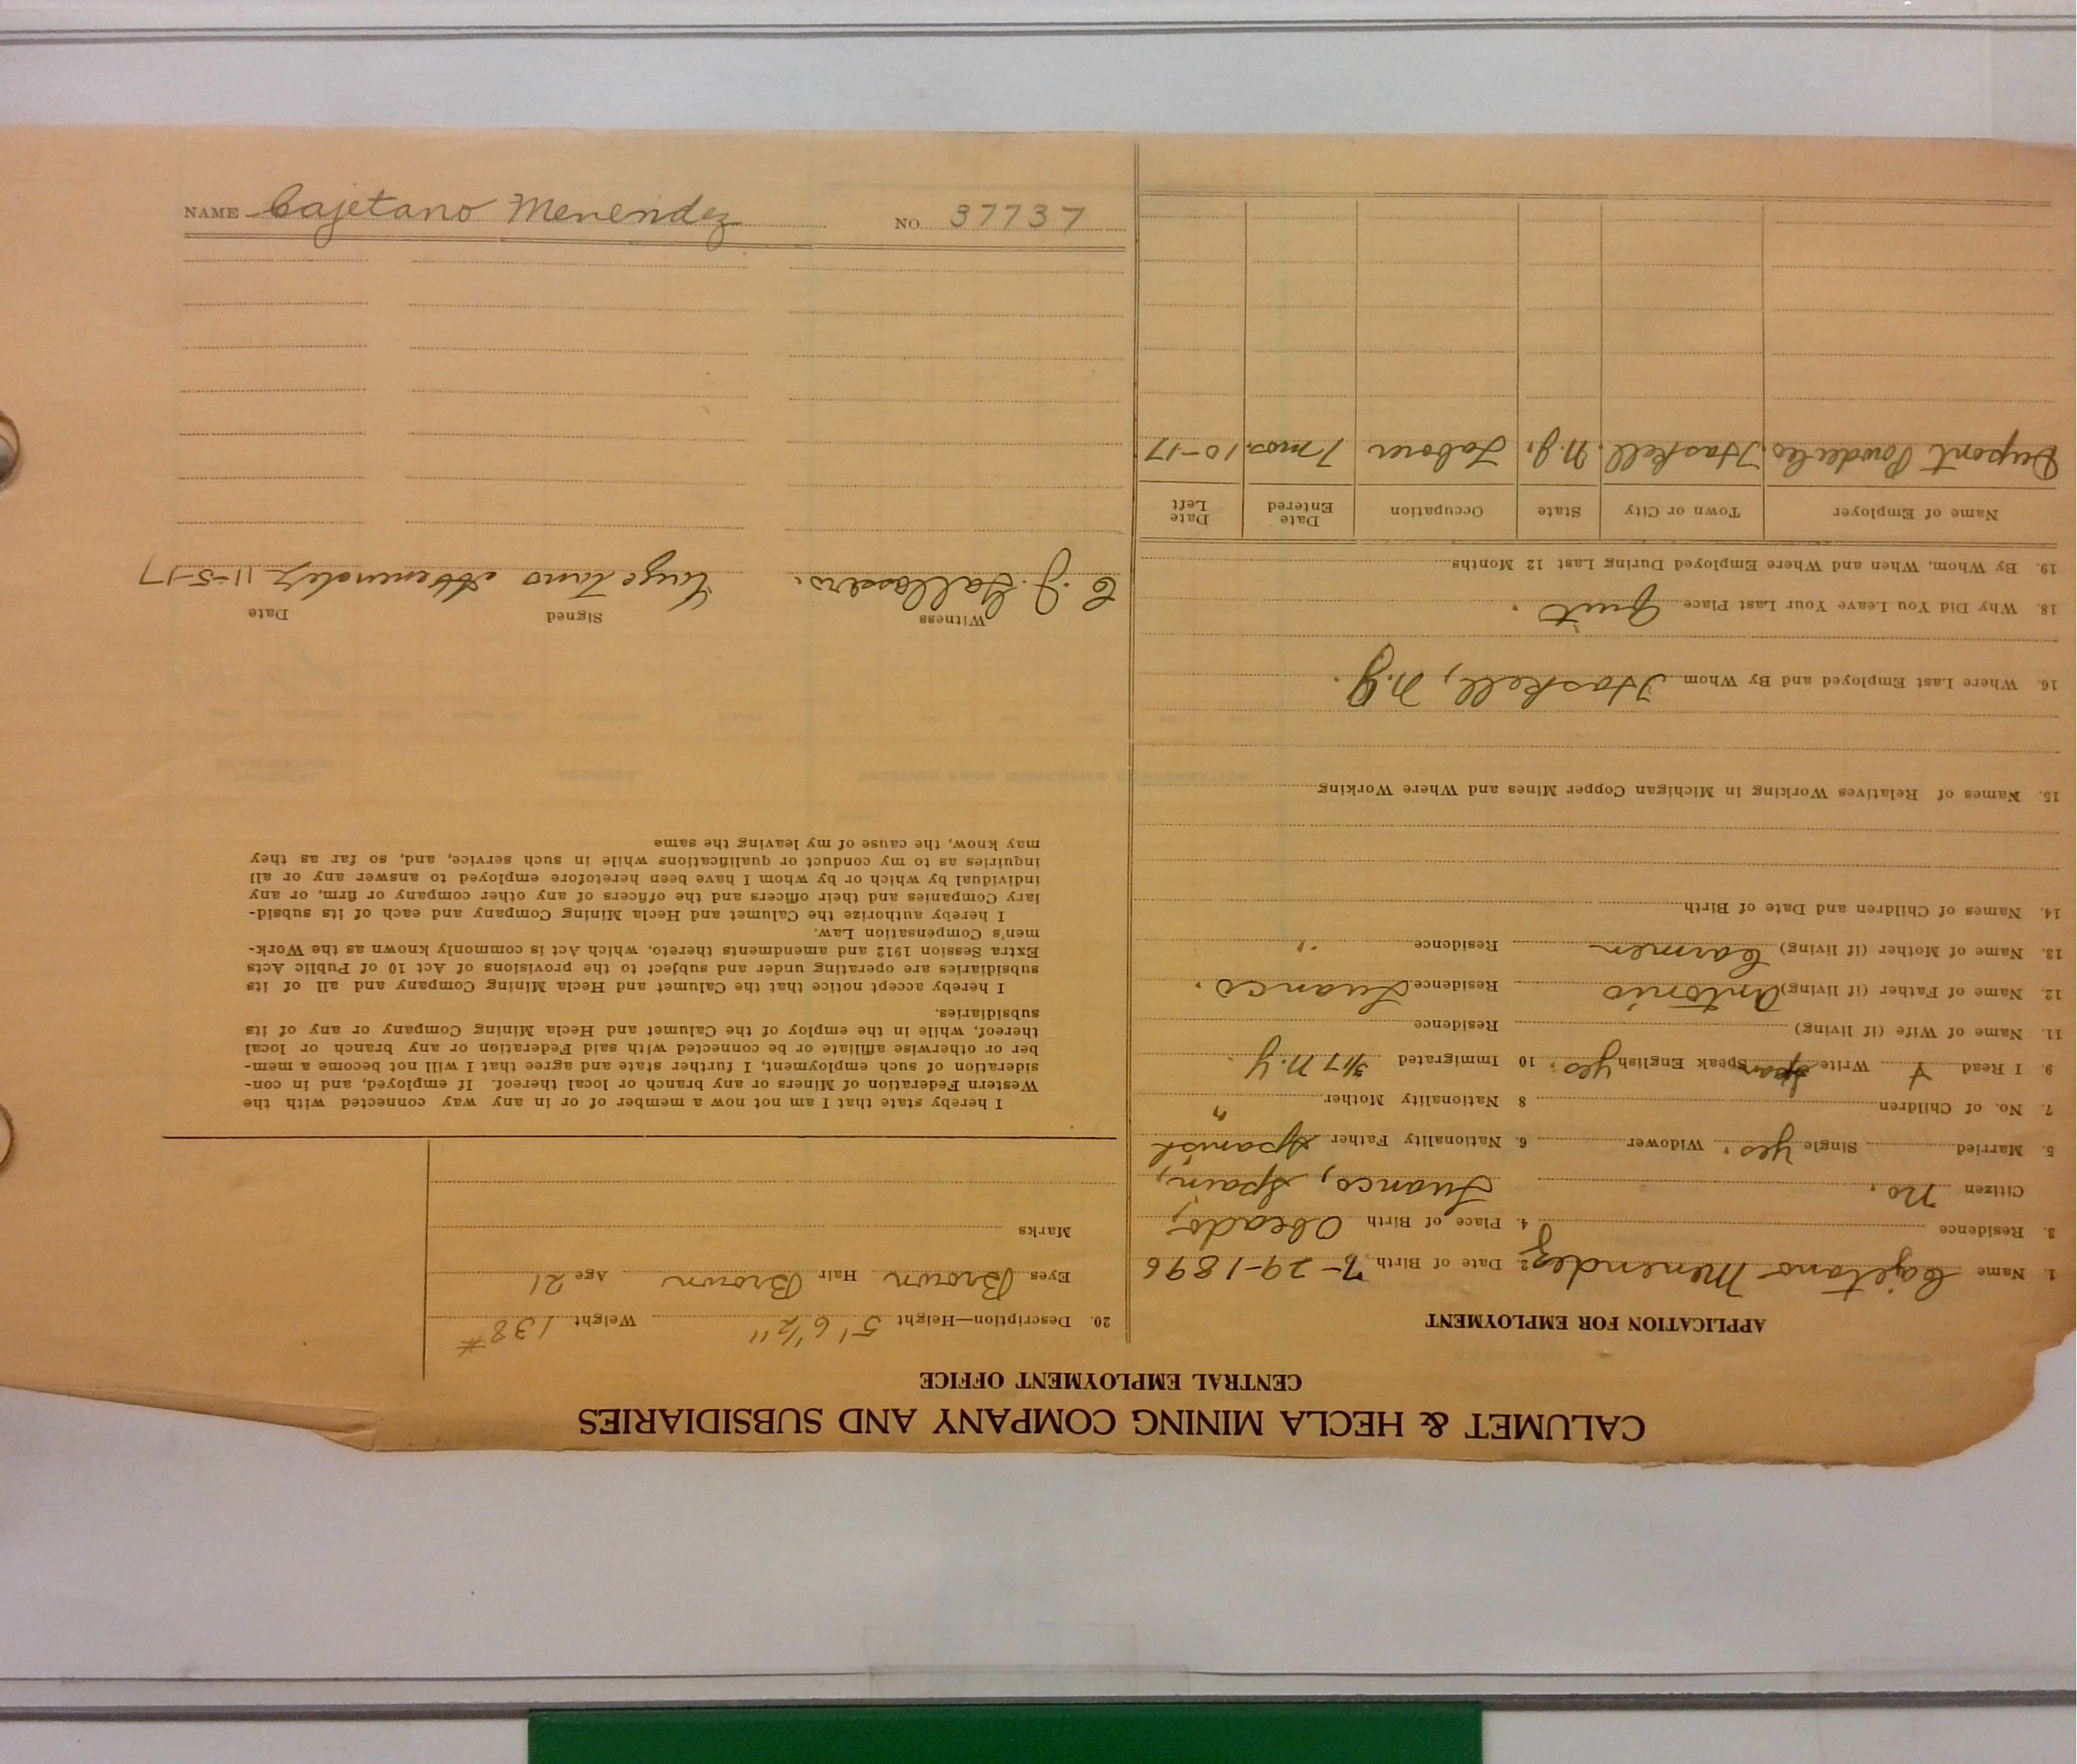 CALUMET & HECLA MINING COMPANY AND SUBSIDIARIES
CENTRAL EMPLOYMENT OFFICE
APPLICATION FOR EMPLOYMENT
1. Name Cajetano Menendez 2. Date of Birth 7-29-1896
3. Residence 4. Place of Birth Obeado,
Citizen no. Luanco, Spain,
5. Married Single yes. Widower 6. Nationality Father Spanish
7. No. of Children 8 Nationality Mother "
9. I Read Write Span Speak English yes. 10 Immigrated 3/17 N.Y.
11. Name of Wife (if living) Residence
12. Name of Father (if living) Antonio Residence Luanco.
13. Name of Mother (if living) Carmen Residence "
14. Names of Children and Date of Birth
15. Names of Relatives Working in Michigan Copper Mines and Where Working
16. Where Last Employed and By Whom Haskell, N.J.
18. Why Did You Leave Your Last Place Quit.
19. By Whom, When and Where Employed During Last 12 Months
Name of Employer Town or City State Occupation Date Entered Date Left
Dupont Powder Co. Haskell. N.J. Laborer 7 mos. 10-17
20. Description—Height 5' 6 1/2" Weight 138 #
Eyes Brown Hair Brown Age 21
Marks
I hereby state that I am not now a member of or in any way connected with the
Western Federation of Miners or any branch or local thereof. If employed, and in con-
sideration of such employment, I further state and agree that I will not become a mem-
ber or otherwise affiliate or be connected with said Federation or any branch or local
thereof, while in the employ of the Calumet and Hecla Mining Company or any of its
subsidiaries.
I hereby accept notice that the Calumet and Hecla Mining Company and all of its
subsidiaries are operating under and subject to the provisions of Act 10 of Public Acts
Extra Session 1912 and amendments thereto, which Act is commonly known as the Work-
men's Compensation Law.
I hereby authorize the Calumet and Hecla Mining Company and each of its subsid-
iary Companies and their officers and the officers of any other company or firm, or any
individual by which or by whom I have been heretofore employed to answer any or all
inquiries as to my conduct or qualifications while in such service, and, so far as they
may know, the cause of my leaving the same
Witness Signed Date
C. J. 11-5-17
NAME Cajetano Menendez NO. 37737